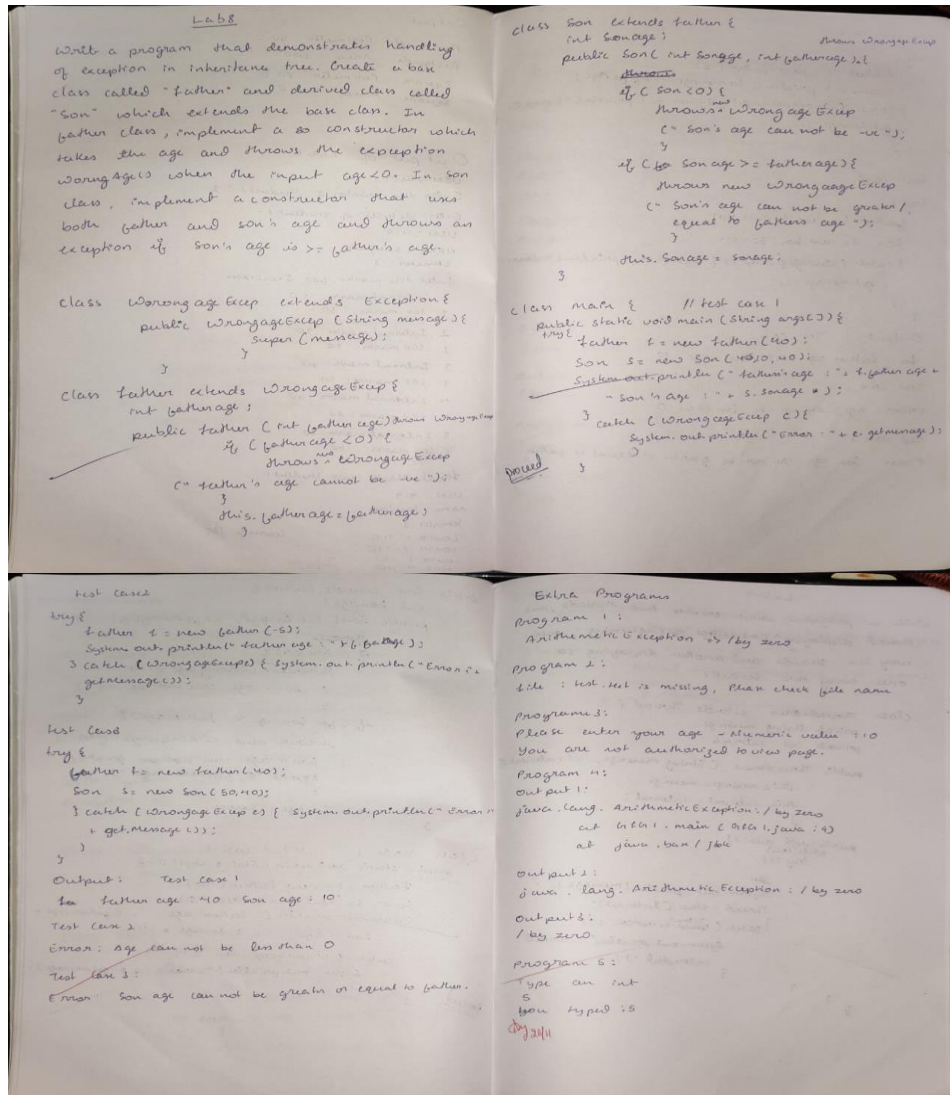 Lab 8
Write a program that demonstrates handling
of exception in inheritance tree. Create a base
class called "father" and derived class called
"Son" which extends the base class. In
father class, implement a so constructor which
takes the age and throws the expception
WorngAge() when the input age<0. In son
class, implement a constructor that uses
both father and son's age and throws an
exception if son's age is >= father's age.
class WorongageExcep extends Exception {
public WrongageExcep (String message) {
super (message);
}
}
class father extends WrongageExcep {
int fatherage;
public father (int fatherage) throws WrongageExcep
if (fatherage <0) {
throws new WrongageExcep
(" father's age cannot be -ve ");
}
this.fatherage = fatherage;
}
class Son extends father {
int Sonage;
throws WrongageExcep
public Son( int Sonage, int fatherage) {
throws
if ( Son <0) {
throws new WrongageExcep
(" Son's age can not be -ve ");
}
if ( fa Sonage >= fatherage) {
throws new WrongaageExcep
(" Son's age can not be greater/
equal to fathers age ");
}
this.Sonage = sonage;
}
class main { // test case 1
public static void main (String args[]) {
try{
father f = new father(40);
Son s = new Son( 10, 40);
System.out.println (" father's age : " + f.fatherage +
"Son's age : " + s.sonage );
} catch (WrongageExcep e) {
System.out.println ("Error : " + e.getmessage);
}
Proceed
}
test case2
try {
father f = new father (-5);
System.out.println(" father age : " + f.);
} catch (WrongageExcepe) { System.out.println ("Error :
getMessage ());
}
test case3
try {
father f = new father(40);
Son s = new Son (50,40);
} catch (WrongageExcep e) { System.out.println (" Error "
+ get.Message ());
}
}
Output : Test case 1
fa father age : 40 Son age : 10
Test case 2
Error : Age can not be less than 0
Test case 3 :
Error Son age can not be greater or equal to father.
Extra Programs
Program 1 :
Arithemetic Exception is / by zero
Program 2 :
file : test.txt is missing, Please check file name
Program 3:
Please enter your age - Numeric value : 10
You are not authorized to view page.
Program 4:
output 1:
java.lang. ArithmeticException : / by zero
at GFG1. main ( GFG1.java : 9)
at java.base /
output 2 :
java . lang. Arithmetic Exception : / by zero
output 3 :
/ by zero
Program 5 :
Type an int
5
You typed : 5